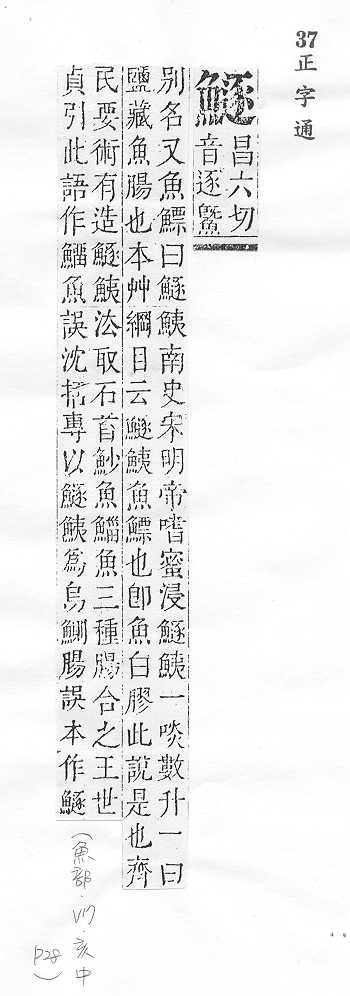 37 正字通
鱁
昌六切
音逐鱀
別名又魚鰾曰鱁鮧南史宋明帝嗜蜜浸鱁鮧一啖數升一曰
鹽藏魚腸也本艸綱目云鱁鮧魚鰾也卽魚白膠此說是也齊
民要術有造鱁鮧法取石首魦魚鯔魚三種腸合之王世
貞引此語作鰡魚誤沈括專以鱁鮧為烏鰂腸誤本作鱁
(魚部·VII·亥中
P28)